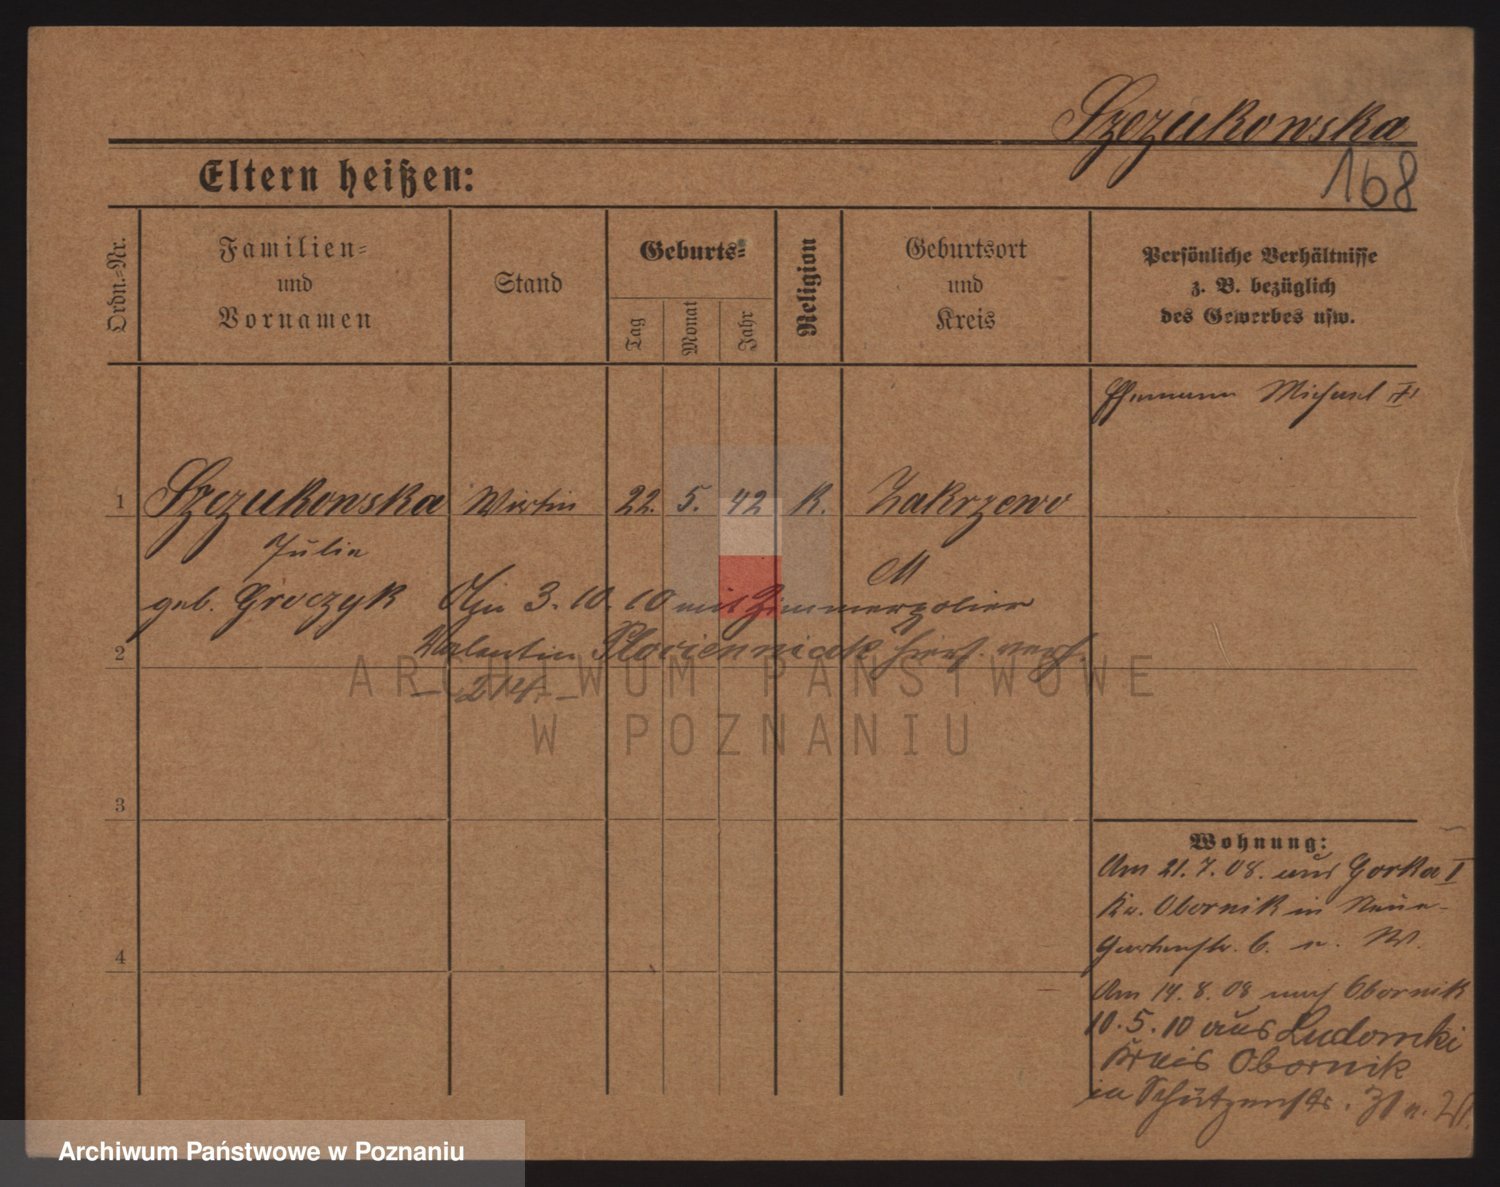 Szczukowska
168
Eltern heißen:
Ordn.-Nr.
Familien-
und
Vornamen
Stand
Geburts-
Tag
Monat
Jahr
Religion
Geburtsort
und
Kreis
Persönliche Verhältnisse
z. B. bezüglich
des Gewerbes usw.
Ehemann Michael †
1 Szczukowska Wirtin 22. 5. 42 K. Zakrzewo
Julie
geb. Groczyk
M
3. 10. 10 mit Zimmerpolier
2
Valentin
214.
ARCHIWUM PAŃSTWOWE
W POZNANIU
3
4
Wohnung:
Am 21. 7. 08. aus Gorka I
Kr. Obornik in Neue-
Gartenstr. 6. n. W.
Am 14. 8. 08 nach Obornik
10. 5. 10 aus Ludomki
Kreis Obornik
in Schützenstr. 31
Archiwum Państwowe w Poznaniu